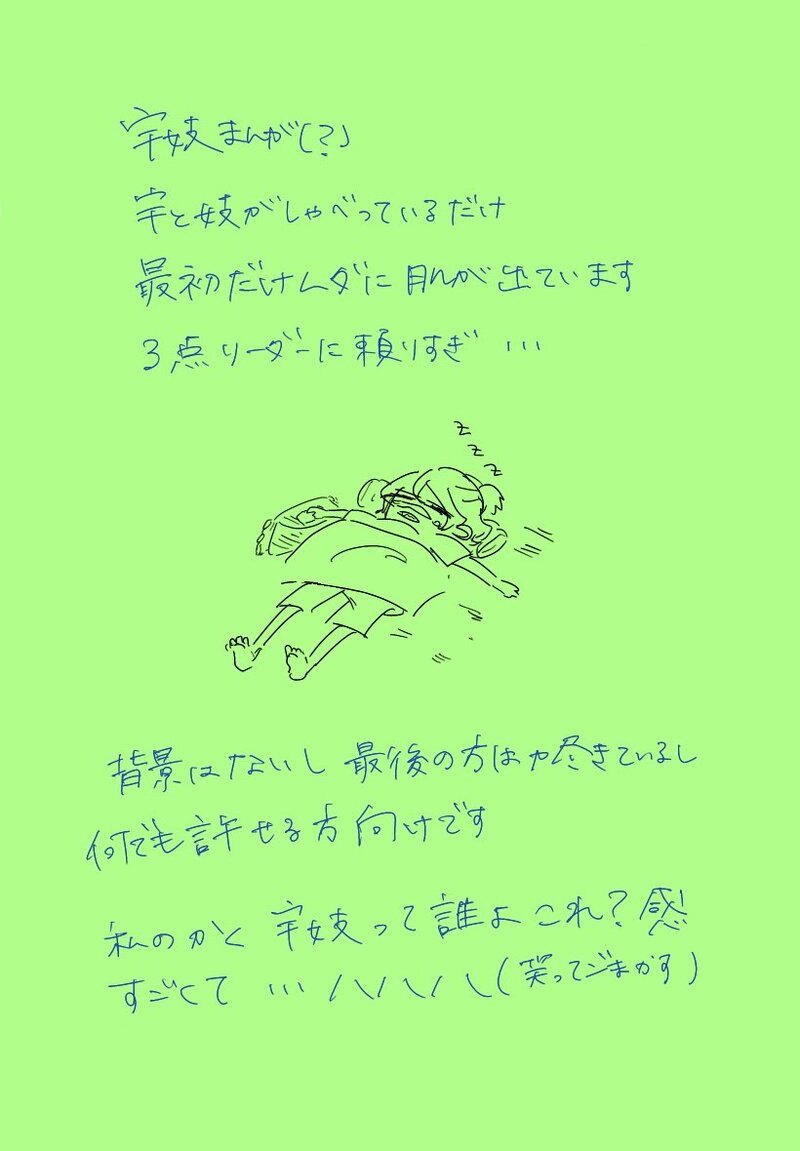 宇妓まんが(?)
宇と妓がしゃべっているだけ
最初だけムダに月みが出ています
3点リーダーに頼りすぎ …
z
z
z
背景はないし 最後の方は力尽きているし
何でも許せる方向けです
私のかく 宇妓って誰よこれ?感
すごくて … ハハハ(笑ってごまかす)